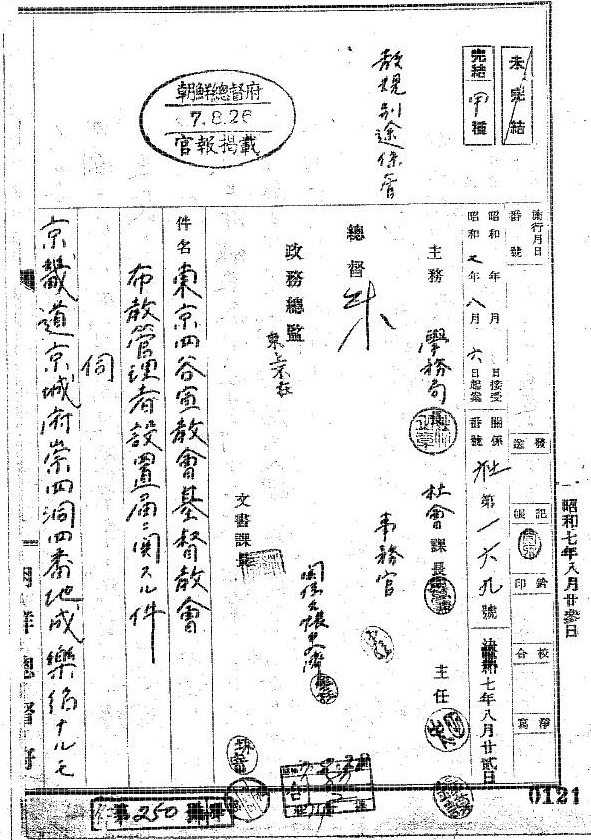 昭和七年八月廿參日
未完結
完結 甲種
敎規別途保管
朝鮮總督府
7.8.26
官報揭載
施行月日
番號
發送
記帳
鈐印
校合
淨寫
昭和 年 月 日接受
昭和七年八月六日起案
關係番號 社第一六九號
昭和七年八月廿貳日
主務 學務局長
社會課長
主任
事務官
總督
政務總監
東上不在
文書課長
件名 東京四谷宣敎會基督敎會
布敎管理者設置届ニ関スル件
伺
京畿道京城府崇四洞四番地成樂紹ナルモ
朝鮮總督府
第250號
0121